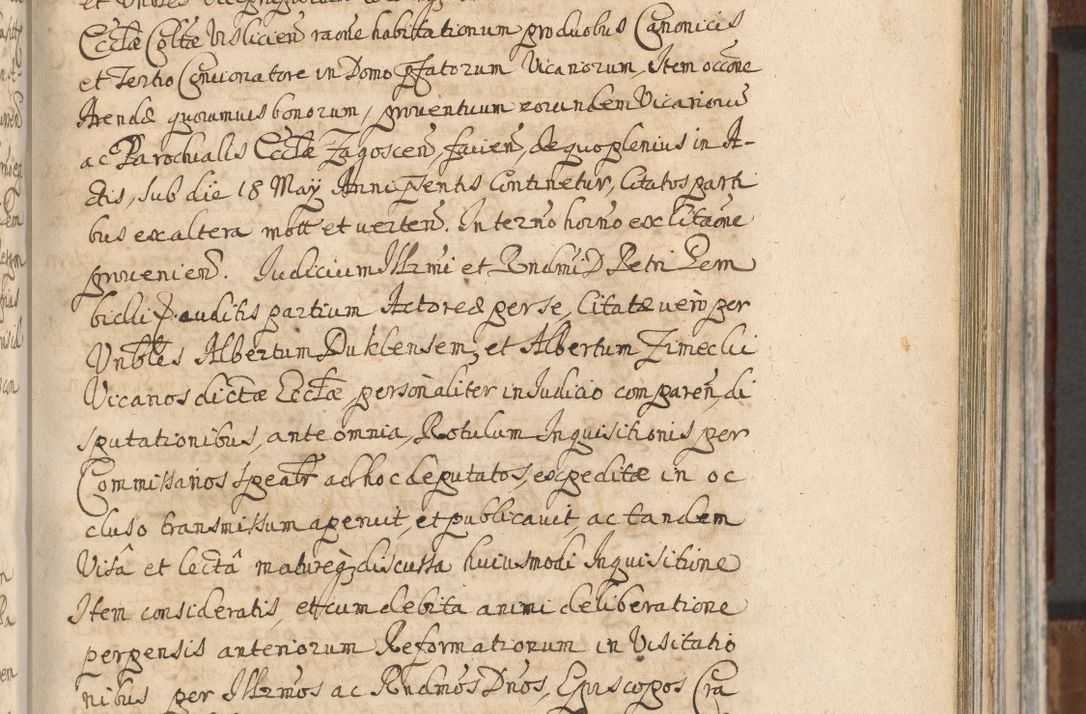 Ecclæ Coltæ Vislicien̄ raōne habitationum pro duobus Canonicis
et Tertio Concionatore in Domo pfatorum Vicariorum, Item occōne
Arendæ quorumvis bonorum, proventuum eorundem Vicariorū
ac Parochialis Ecclæ Zagoscen̄ facien̄, de quo plenius in A-
ctis, sub die 18 May Anni p̄sentis Continetur, Citatos parti
bus ex altera mōtt et verten̄. In termō hornō ex Citaōne
provenien̄. Iudicium Illr̄mi et Rndm̄i D Petri Gem
bicki p. auditis partium Actoreæ per se, Citatæ verò per
Vnbles Albertum Duklensem, et Albertum Zimecki
Vicarios dictæ Ecclæ personaliter in Iudicio comparen̄, di
sputationibus, ante omnia, Rotulum Inquisitionis per
Commissarios speatr ad hoc deputatos, expeditæ in oc
cluso transmissum aperuit, et publicavit, ac tandem
Visâ et lectâ matureq; discussa huiusmodi Inquisitione
Item consideratis, et cum debita animi deliberatione
pergensis anteriorum Reformationum in Visitatio
nibus per Illr̄mos ac Rndm̄os Dn̄os, Episcopos Cra